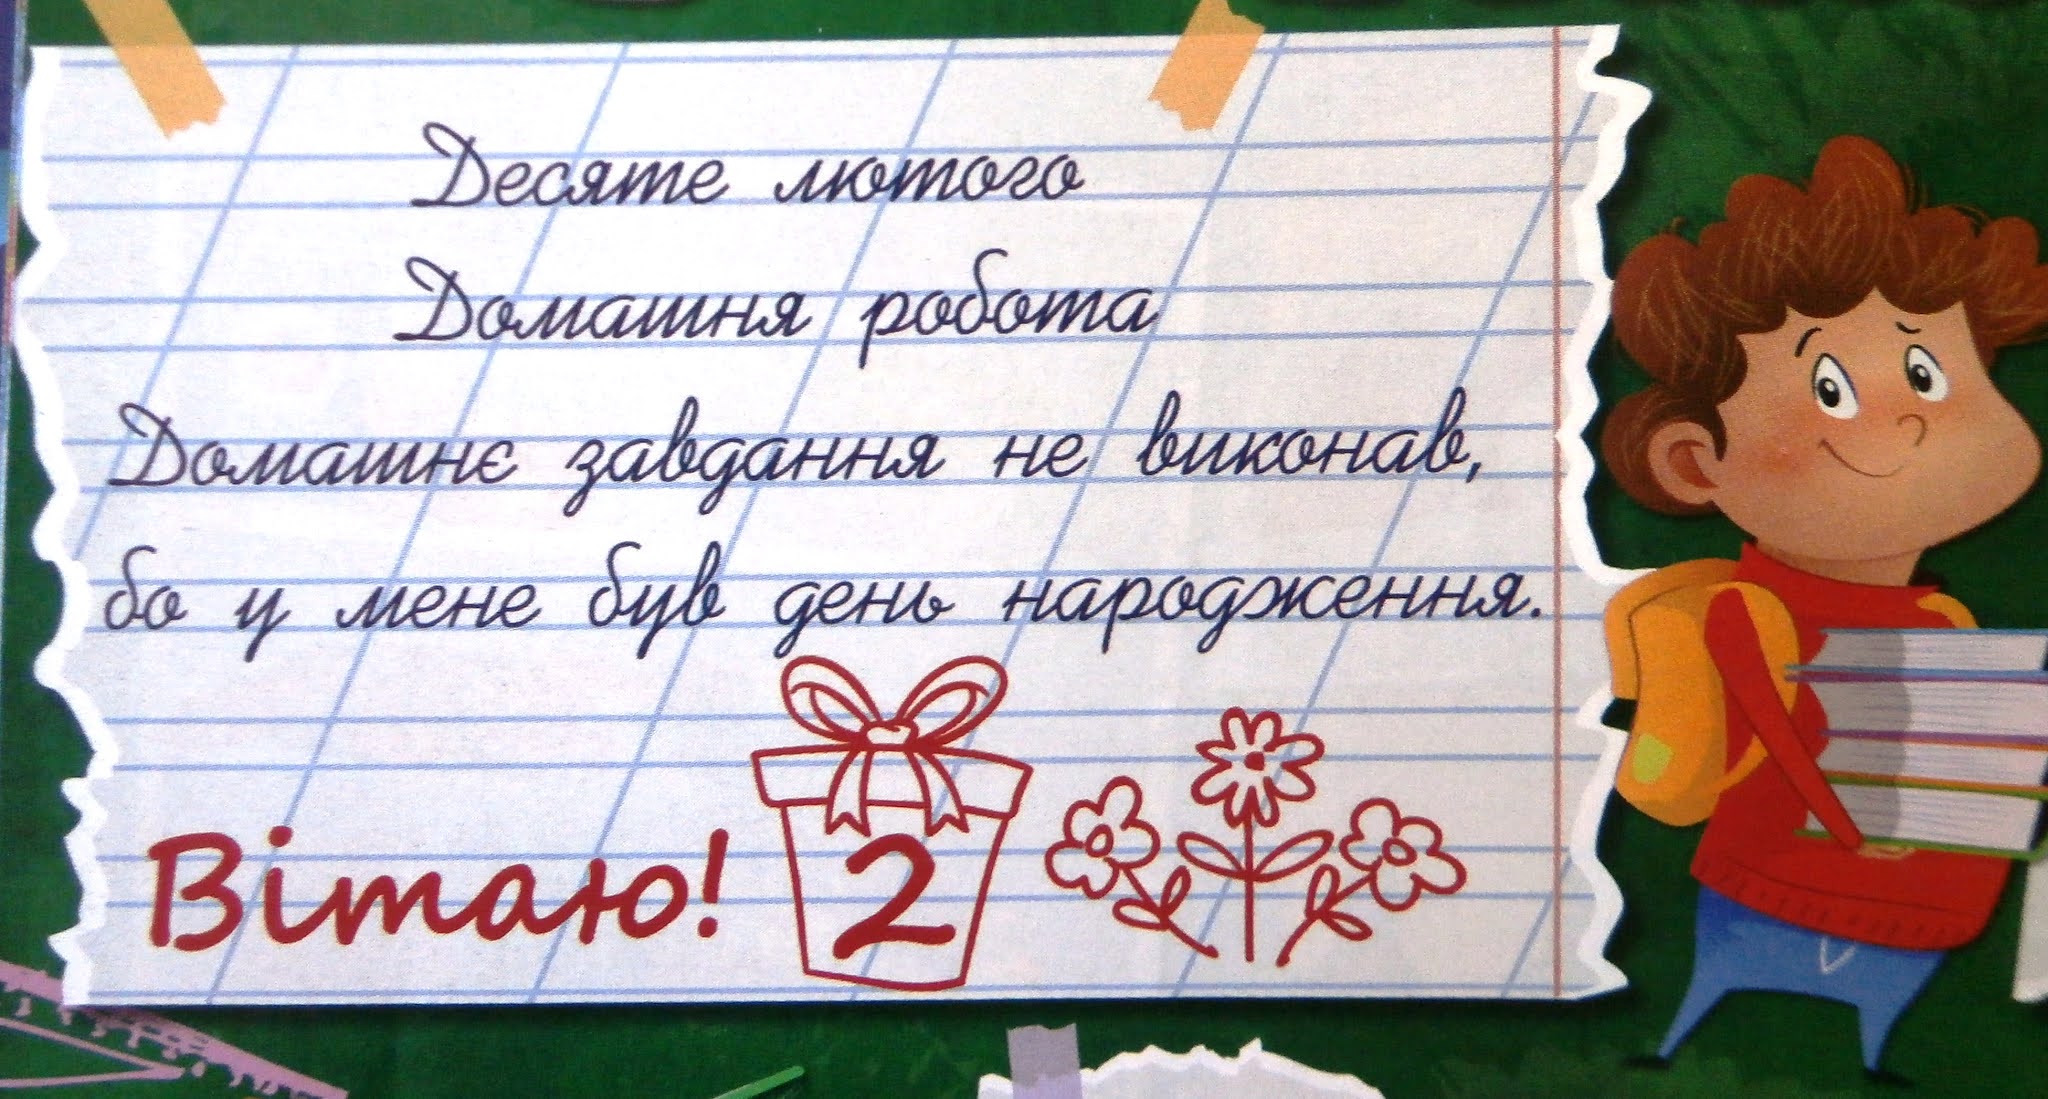 Десяте лютого
Домашня робота
Домашнє завдання не виконав,
бо у мене був день народження.
Вітаю! 2